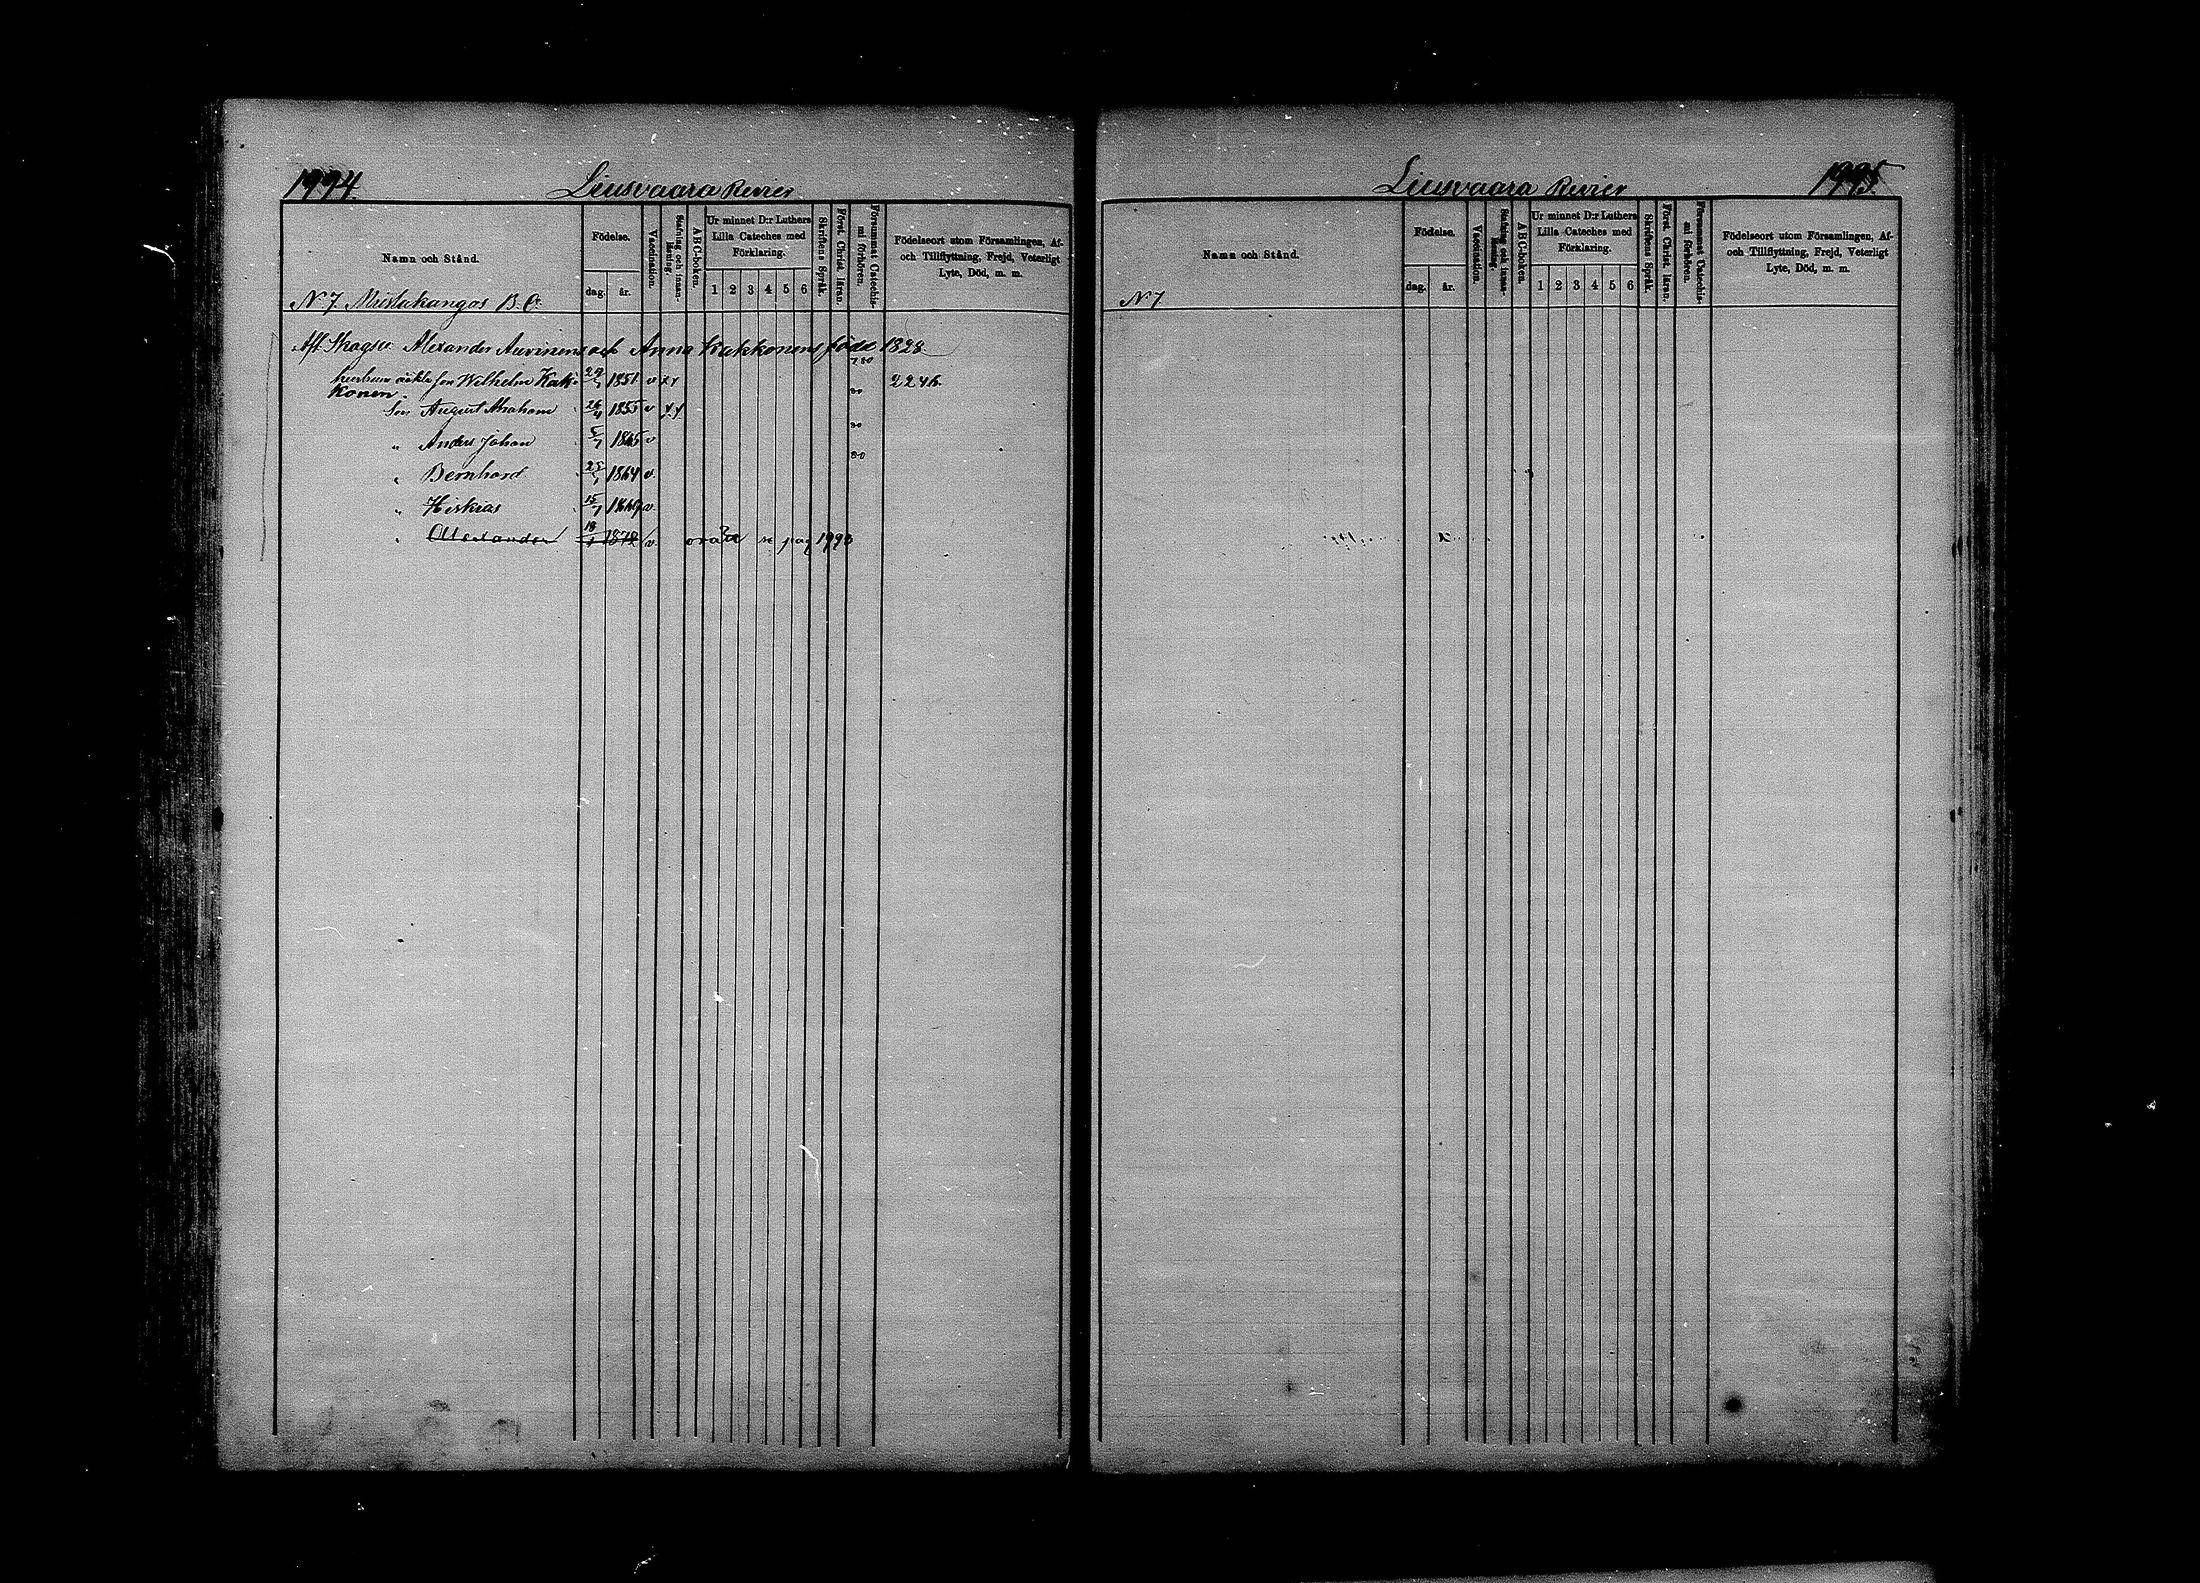 1994.
Liusvaara Revier
Namn och Stånd.
Födelse.
dag.
år.
Vaccination.
Stafning och innan-läsning.
ABC-boken.
Ur minnet D:r Luthers
Lilla Cateches med
Förklaring.
1 2 3 4 5 6
Skriftens Språk.
Först. Christ. läran.
Försummat Catechis-mi förhören.
Födelseort utom Församlingen, Af-
och Tillflyttning, Frejd, Veterligt
Lyte, Död, m. m.
N 7. B. C.
Aft Skogsv. Alexander Auvinens och Anna Kukkonens född 1828
äkta son Wilhelm Kuk- 1851 v xx 2246
konen.
Son August Abraham 26/4 1855 v xx 80
" Anders Johan 5/7 1865 v 80
" Bernhard 1864 v 80
" Hiskias 15/7 v.
" 18 1872 v. orätt se pag 1993
Liusvaara Revier
1995
Namn och Stånd.
Födelse.
dag.
år.
Vaccination.
Stafning och innan-läsning.
ABC-boken.
Ur minnet D:r Luthers
Lilla Cateches med
Förklaring.
1 2 3 4 5 6
Skriftens Språk.
Först. Christ. läran.
Försummat Catechis-mi förhören.
Födelseort utom Församlingen, Af-
och Tillflyttning, Frejd, Veterligt
Lyte, Död, m. m.
N 7